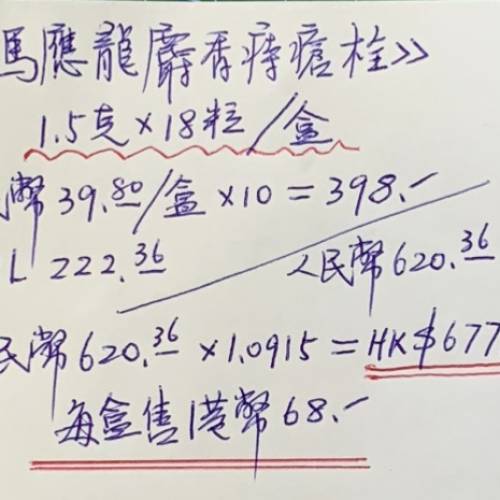 馬應龍麝香痔瘡栓》
1.5克×18粒/盒
幣39.80/盒×10=398.-
222.36 人民幣620.36
民幣620.36×1.0915=HK$677
每盒售港幣68.-